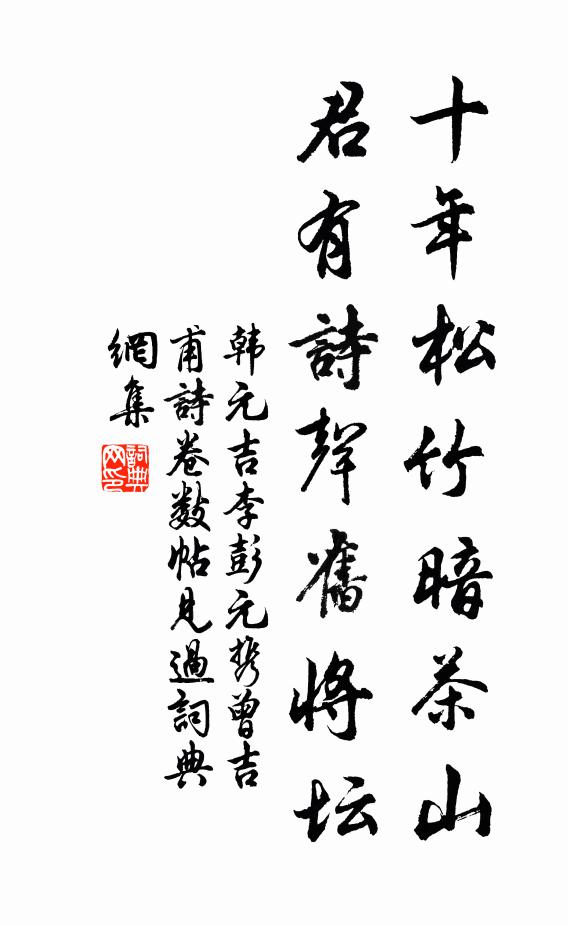 十年松竹暗茶山
君有詩聲舊將坛
韩元吉李彭元携曾吉
甫詩卷数帖見過詞典
網集
詞典网印